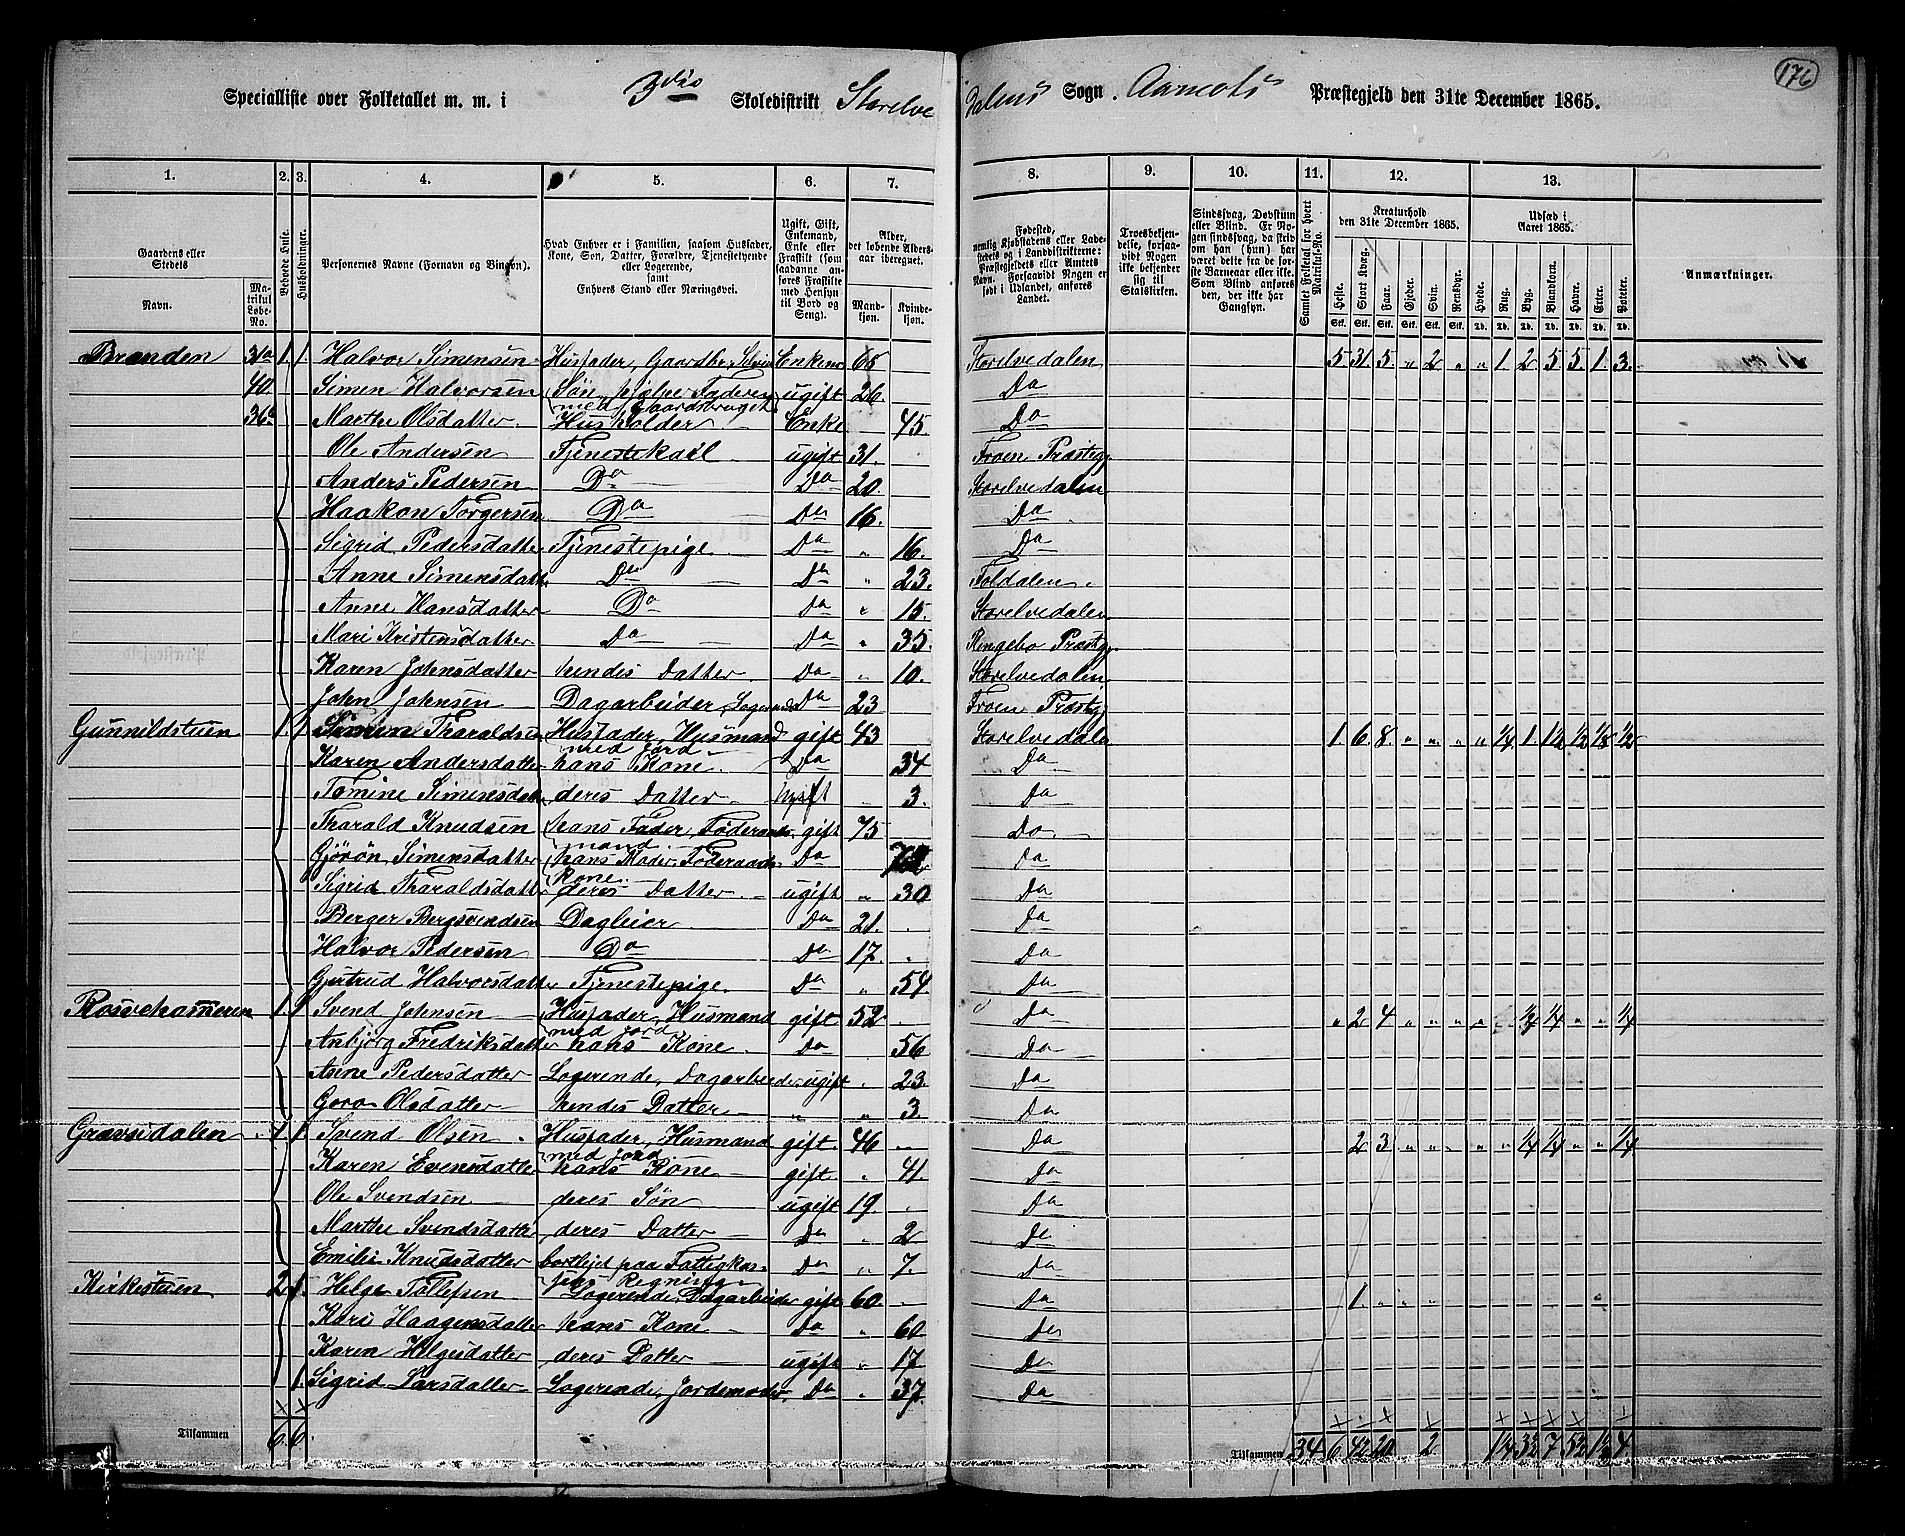 176
Specialliste over Folketallet m. m. i 3die Skoledistrikt Storelve dalens Sogn, Aamots Præstegjeld den 31te December 1865.
1. 2. 3. 4. 5. 6. 7. 8. 9. 10. 11. 12. 13.
Gaardens eller Stedets Navn. Matrikul Løbe-No. Bebyede Huse. Husholdninger. Personernes Navne (Fornavn og Bingon). Hvad Enhver er i Familien, saasom Husfader, Kone, Søn, Datter, Forældre, Tjenestetyende eller Logerende, samt Enhvers Stand eller Næringsvei. Ugift, Gift, Enkemand, Enke eller Fraskilt (som saadanne anføres Fraskilte med Hensyn til Bord og Seng). Alder, det løbende Aldersaar iberegnet. Mandkjøn. Kvindekjøn.
Fødested, nemlig Kjøbstadens eller Ladestedets og i Landdistrikterne: Præstegjeldets eller Amtets Navn. Forsaavidt Nogen er født i Udlandet, anføres Landet. Troesbekjendelse, forsaavidt Nogen ikke bekjender sig til Statskirken. Sindssvag, Døvstum eller Blind. Er Nogen sindssvag, da skrid om han (hun) har været dette fra de første Barneaar eller ikke. Som Blind anføres den, der ikke har Gangsyn. Samlet Folketal for hvert Matrikul-No. Kreaturhold den 31te December 1865. Heste. Stort Kvæg. Faar. Gjeder. Svin. Rensdyr. Udsæd i Aaret 1865. Hvede. Rug. Byg. Blandkorn. Havre. Erter. Poteter. Anmærkninger.
Stk. Stk. Stk. Stk. Stk. Stk. Td. Td. Td. Td. Td. Td. Td.
Brænden 31a 1. 1 Halvor Simensen Husfader, Gaardbr. Enkem 65 Storelvedalen 5 31 5 " 2 " " 1 2 5 5 1 3
40. Simen Halvorsen Søn, hjælper Faderen med Gaardsbruget ugift 26. Do
36a Marthe Olsdatter Husholder Enke 45. Do
Ole Andersen Tjenestekarl ugift 31. Froen Præsteg.
Anders Pedersen Do Do 20. Storelvedalen
Haakon Torgersen Do Do 16. Do
Sigrid Pedersdatter Tjenestepige Do " 16. Do
Anne Simensdatter Do Do " 23. Foldalen
Anne Hansdatter Do Do " 15. Storelvedalen
Mari Kristensdatter Do Do " 35. Ringebo Præstg.
Karen Johnsdatter hendes Datter Do " 10. Storelvedalen
John Johnsen Dagarbeider, Logerende Do 23 Froen Præstg.
Gunnildstuen 1. 1 Simen Tharaldsen Husfader, Husmand med Jord gift 43 Storelvedalen 1. 6. 8. " " " " 1/4 1. 1 1/2 1/2 1/8 1/2
Karen Andersdatter hans Kone Do 34 Do
Tomine Simensdatter deres Datter ugift 3. Do
Tharald Knudsen hans Fader, Føderaads mand gift 75 Do
Gjørøn Simensdatter hans Moder, Føderaads kone Do Do
Sigrid Tharaldsdatter deres Datter ugift " 30 Do
Berger Bergsvendsen Dagleier Do 21. Do
Halvor Pedersen Do Do 17. Do
Gjertrud Halvorsdatter Tjenestepige Do " 54. Do
1. 1 Svend Johnsen Husfader, Husmand med Jord gift 52 Do " 2 4 " " " " 1/4 1/4 " " 1/4
Anbjørg Fredriksdatter hans Kone Do 56 Do
Anne Pedersdatter Logerende, Dagarbeider ugift " 23 Do
Goro Olsdatter hendes Datter " " 3 Do
Grævsidalen 1. 1. Svend Olsen Husfader, Husmand med Jord gift 46 Do 2 3 " " " " " 1/4 1/4 " " 1/4
Karen Evensdatter hans Kone gift " 41. Do
Ole Svendsen deres Søn ugift 19. Do
Marthe Svendsdatter deres Datter Do " 2 Do
Emilie Knudsdatter bortlejet paa Fattigkassens Regning Do " 7. Do
Kirkestuen 2 1. Helge Tollefsen Logerende, Dagarbeider gift 60. Do 1. " " "
Kari Haagensdatter hans Kone Do " 60 Do
Karen Helgesdatter deres Datter ugift " 17 Do
1. Sigrid Larsdatter Logerende, Jordemoder Do " 37. Do
Tilsammen 6. 6. Tilsammen 34 6 42 20 2 1 1/4 7 4